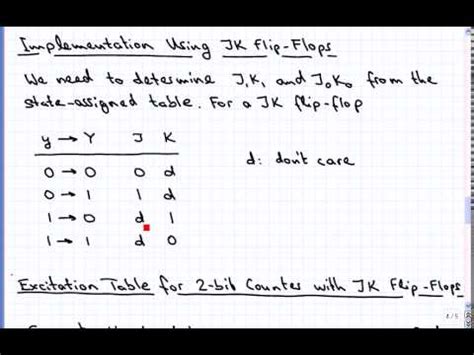 Implementation Using JK Flip-Flops
We need to determine J₁K₁ and J₀K₀ from the
state-assigned table. For a JK flip-flop
y → Y J K
0 → 0 0 d
0 → 1 1 d
1 → 0 d 1
1 → 1 d 0
d: don't care
Excitation Table for 2-bit Counter with JK Flip-Flops